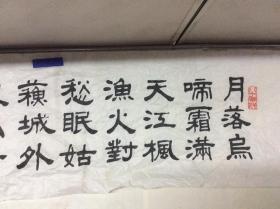 月落烏
啼霜滿
天江楓
漁火對
愁眠姑
蘇城外